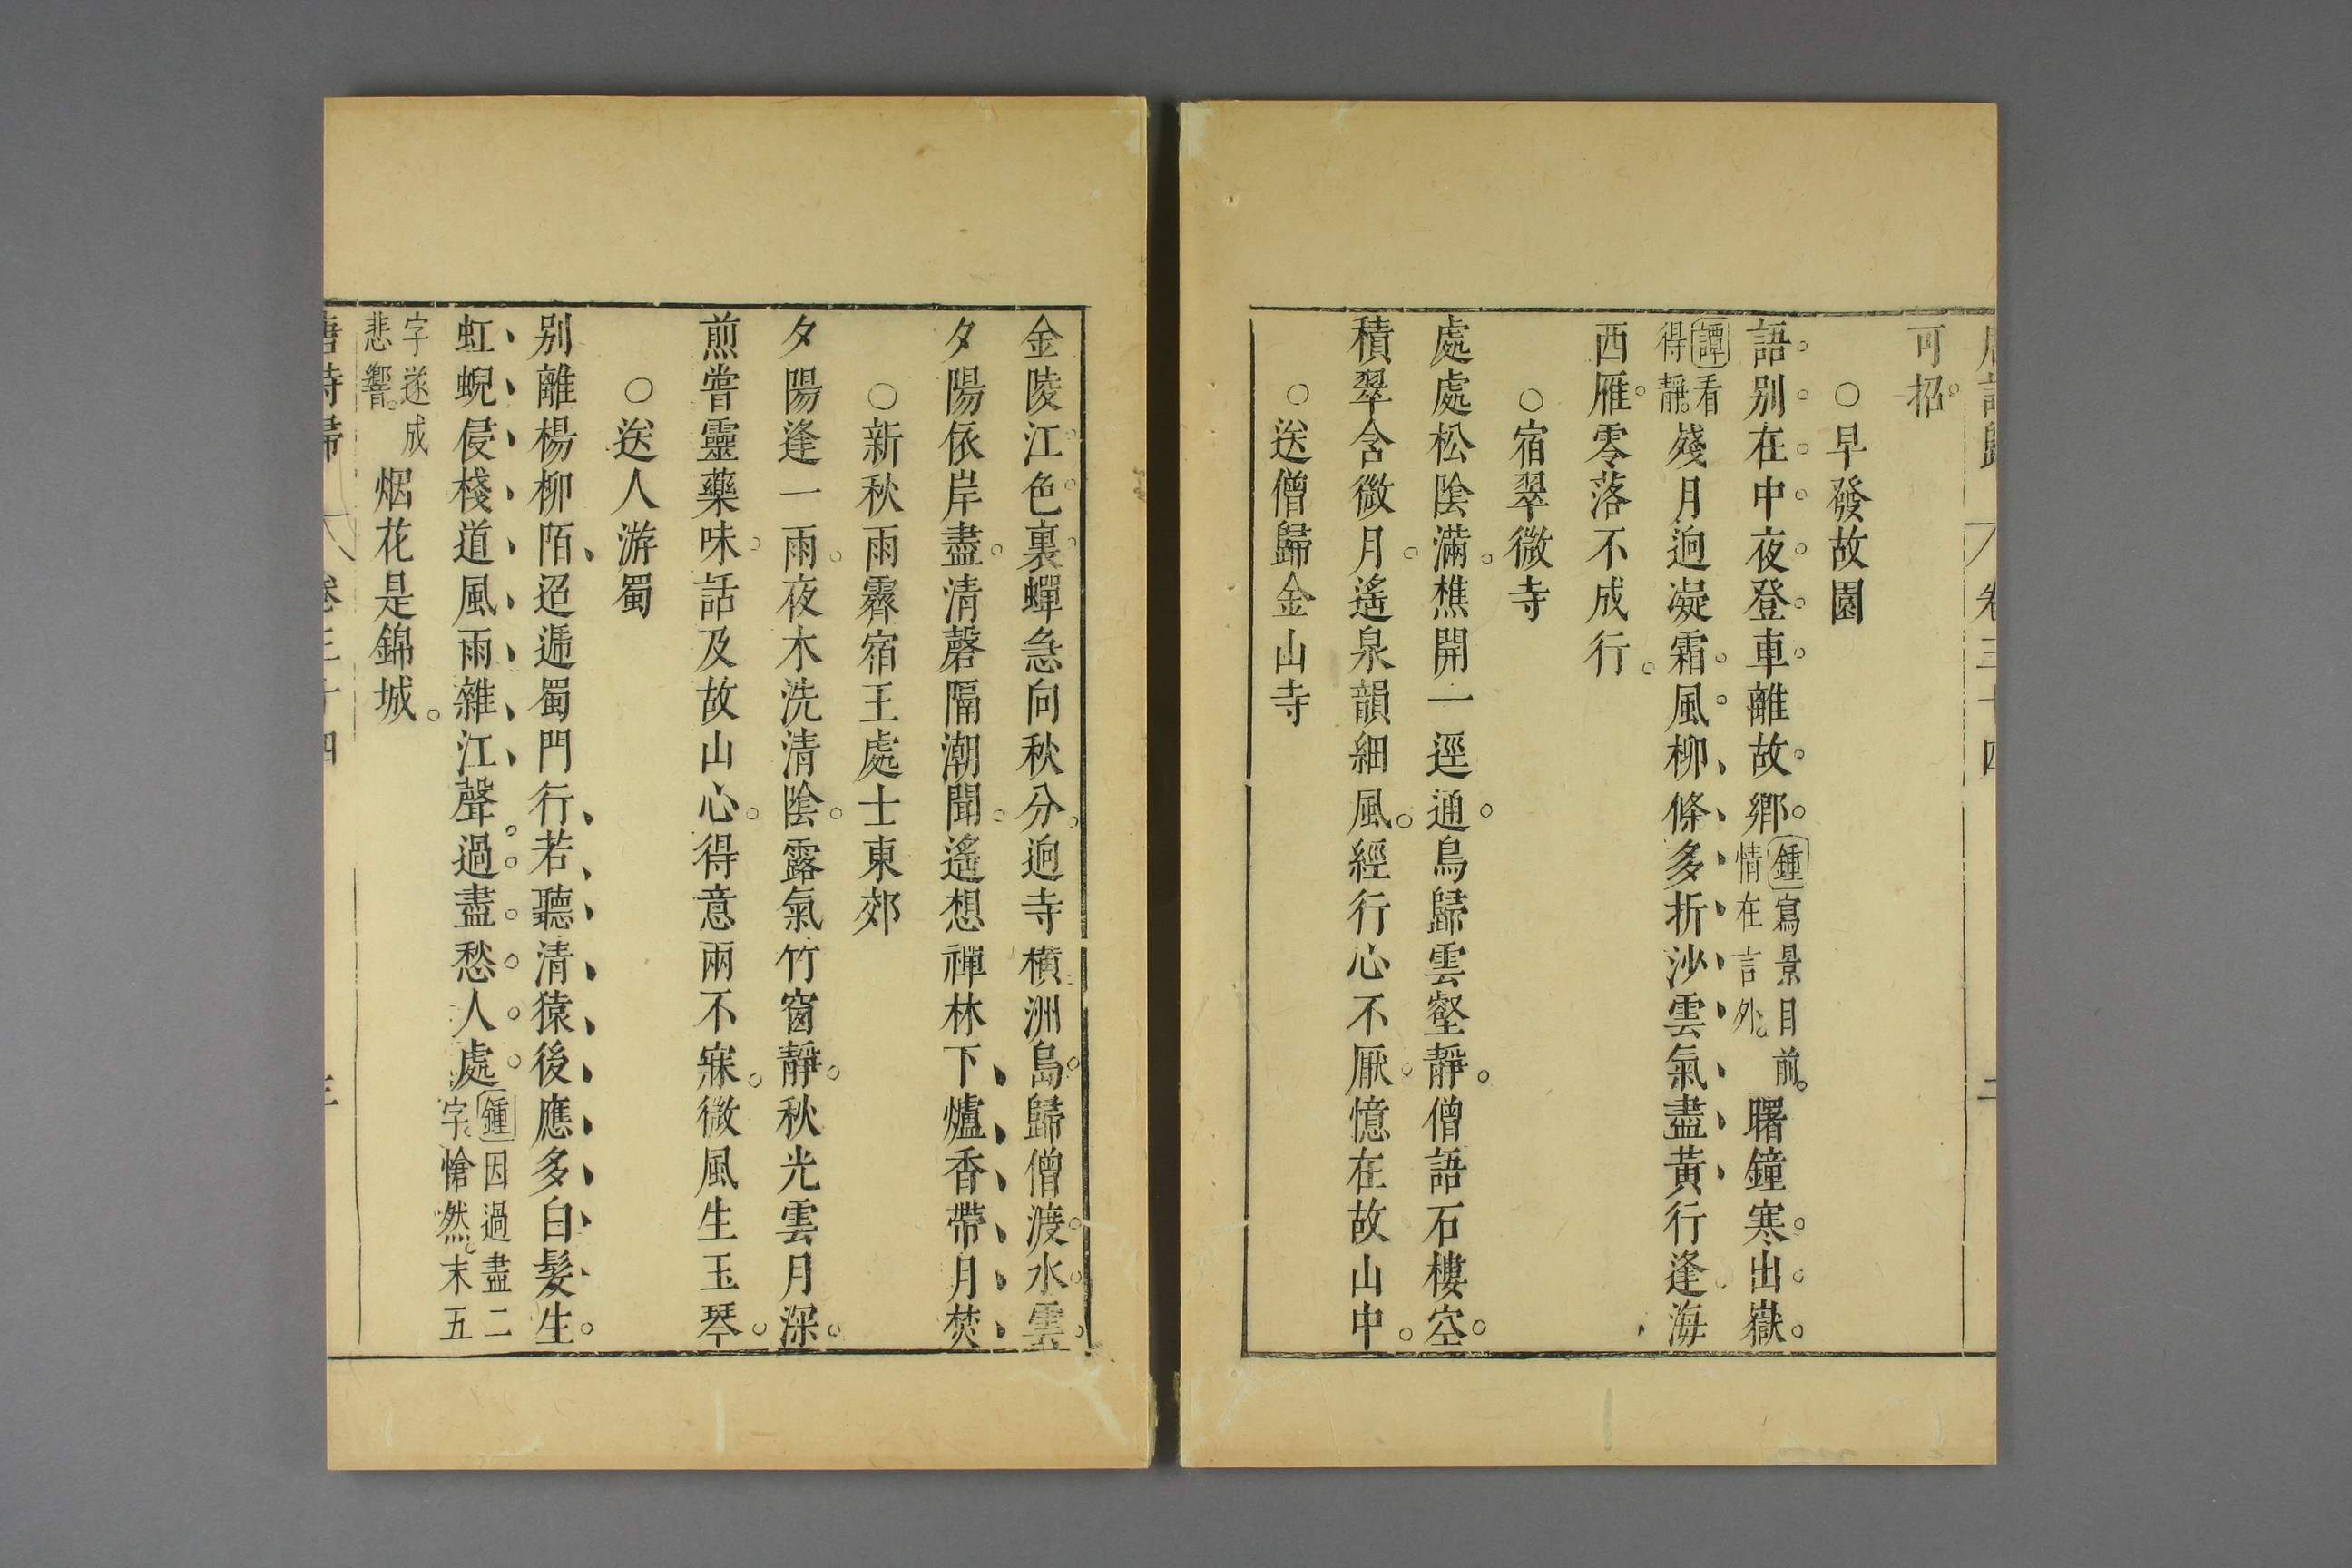 可招。
○早發故園
語別在中夜。登車離故鄉。鍾寫景目前。情在言外。曙鐘寒出嶽。
譚看得靜。殘月逈凝霜。風柳條多折沙雲氣盡黃行逢海
西雁。零落不成行。
○宿翠微寺
處處松陰滿。樵開一逕通。鳥歸雲壑靜。僧語石樓空。
積翠含微月。遙泉韻細風。經行心不厭。憶在故山中。
○送僧歸金山寺
金陵江色裏。蟬急向秋分。逈寺橫洲島。歸僧渡水雲。
夕陽依岸盡。清磬隔潮聞。遙想禪林下、爐香帶月焚、
○新秋雨霽宿王處士東郊
夕陽逢一雨。夜木洗清陰。露氣竹窗靜。秋光雲月深。
煎嘗靈藥味。話及故山心。得意兩不寐。微風生玉琴。
○送人游蜀
別離楊柳陌、迢遞蜀門行、若聽清猿後、應多白髮生。
虹蜺侵棧道、風雨雜江聲。過盡愁人處。鍾因過盡二字愴然。末五
字遂成悲響。烟花是錦城。
唐詩歸 卷三十四 三